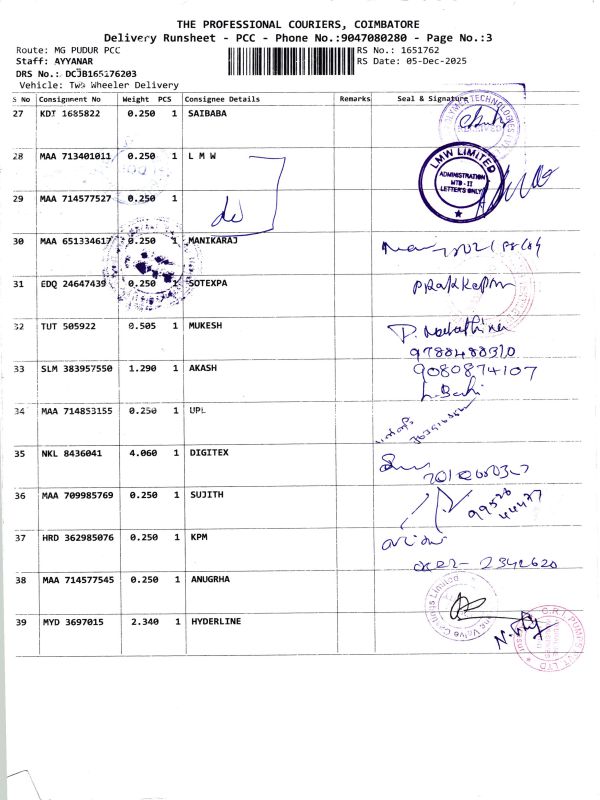 THE PROFESSIONAL COURIERS, COIMBATORE
Delivery Runsheet - PCC - Phone No.:9047080280 - Page No.:3
Route: MG PUDUR PCC
RS No.: 1651762
Staff: AYYANAR
RS Date: 05-Dec-2025
DRS No.: DCJB165176203
Vehicle: Two Wheeler Delivery
S No Consignment No Weight PCS Consignee Details Remarks Seal & Signature
27 KDT 1685822 0.250 1 SAIBABA
28 MAA 713401011 0.250 1 L M W
LMW LIMITED
ADMINISTRATION
MTB - II
LETTERS ONLY
29 MAA 714577527 0.250 1
30 MAA 651334617 0.250 1 MANIKARAJ
31 EDQ 24647439 0.250 1 SOTEXPA
32 TUT 505922 0.505 1 MUKESH
9788488310
33 SLM 383957550 1.290 1 AKASH
9080874107
34 MAA 714853155 0.250 1 UPL
35 NKL 8436041 4.060 1 DIGITEX
36 MAA 709985769 0.250 1 SUJITH
37 HRD 362985076 0.250 1 KPM
2342620
38 MAA 714577545 0.250 1 ANUGRHA
39 MYD 3697015 2.340 1 HYDERLINE
C.R.I. PUMPS PVT LTD